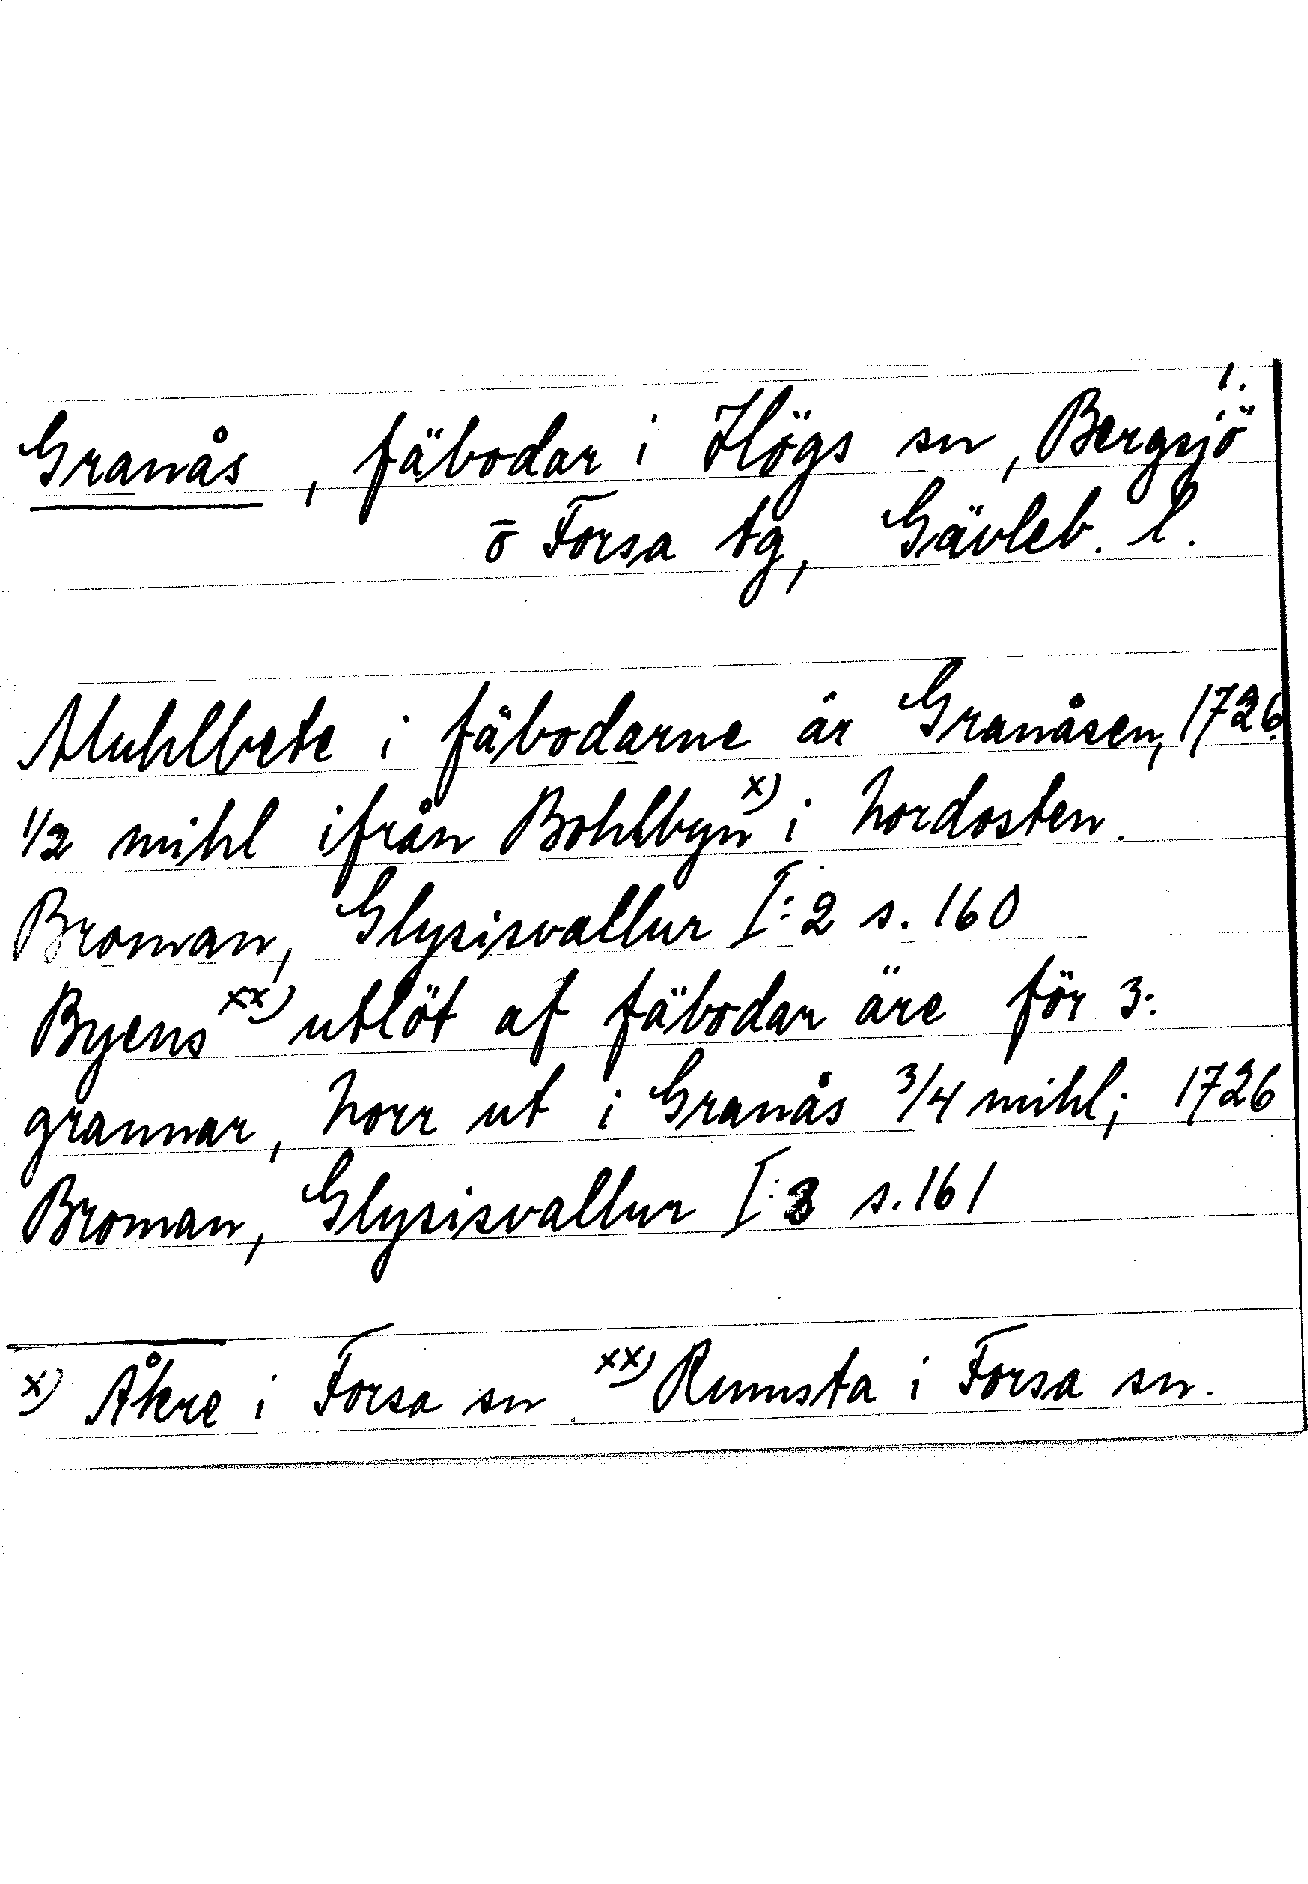 1.
Granås, fäbodar i Högs sn, Bergsjö
o Forsa tg, Gävleb. l.
Muhlbete i fäbodarne är Granåsen, 1726.
1/2 mihl ifrån Bohlbyn x) i Nordosten.
Broman, Glysisvallur I:2 s. 160
Byens xx) utlöt af fäbodar äre för 3:
grannar, Norr ut i Granås 3/4 mihl; 1726
Broman, Glysisvallur I:3 s. 161
x) Åkre i Forsa sn xx) Rumsta i Forsa sn.